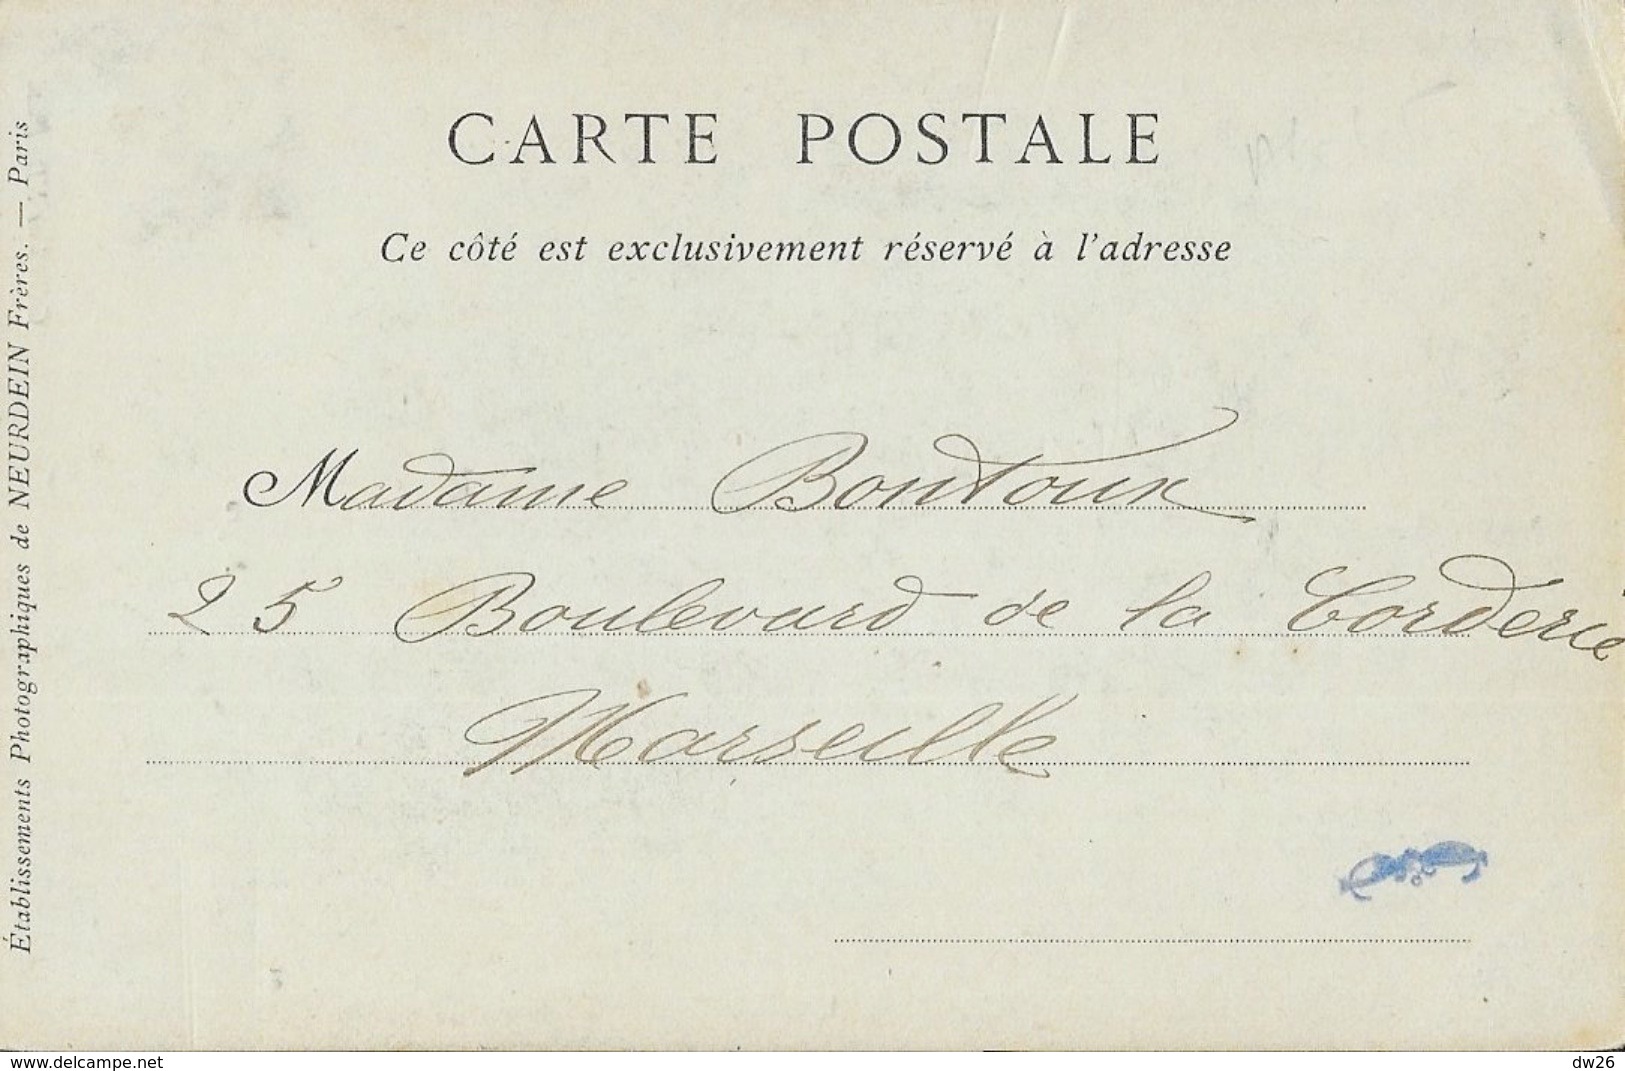 CARTE POSTALE
Ce côté est exclusivement réservé à l'adresse
Madame Bontoux
25 Boulevard de la Corderie
Marseille
Établissements Photographiques de NEURDEIN Frères. — Paris
www.delcampe.net
dw26